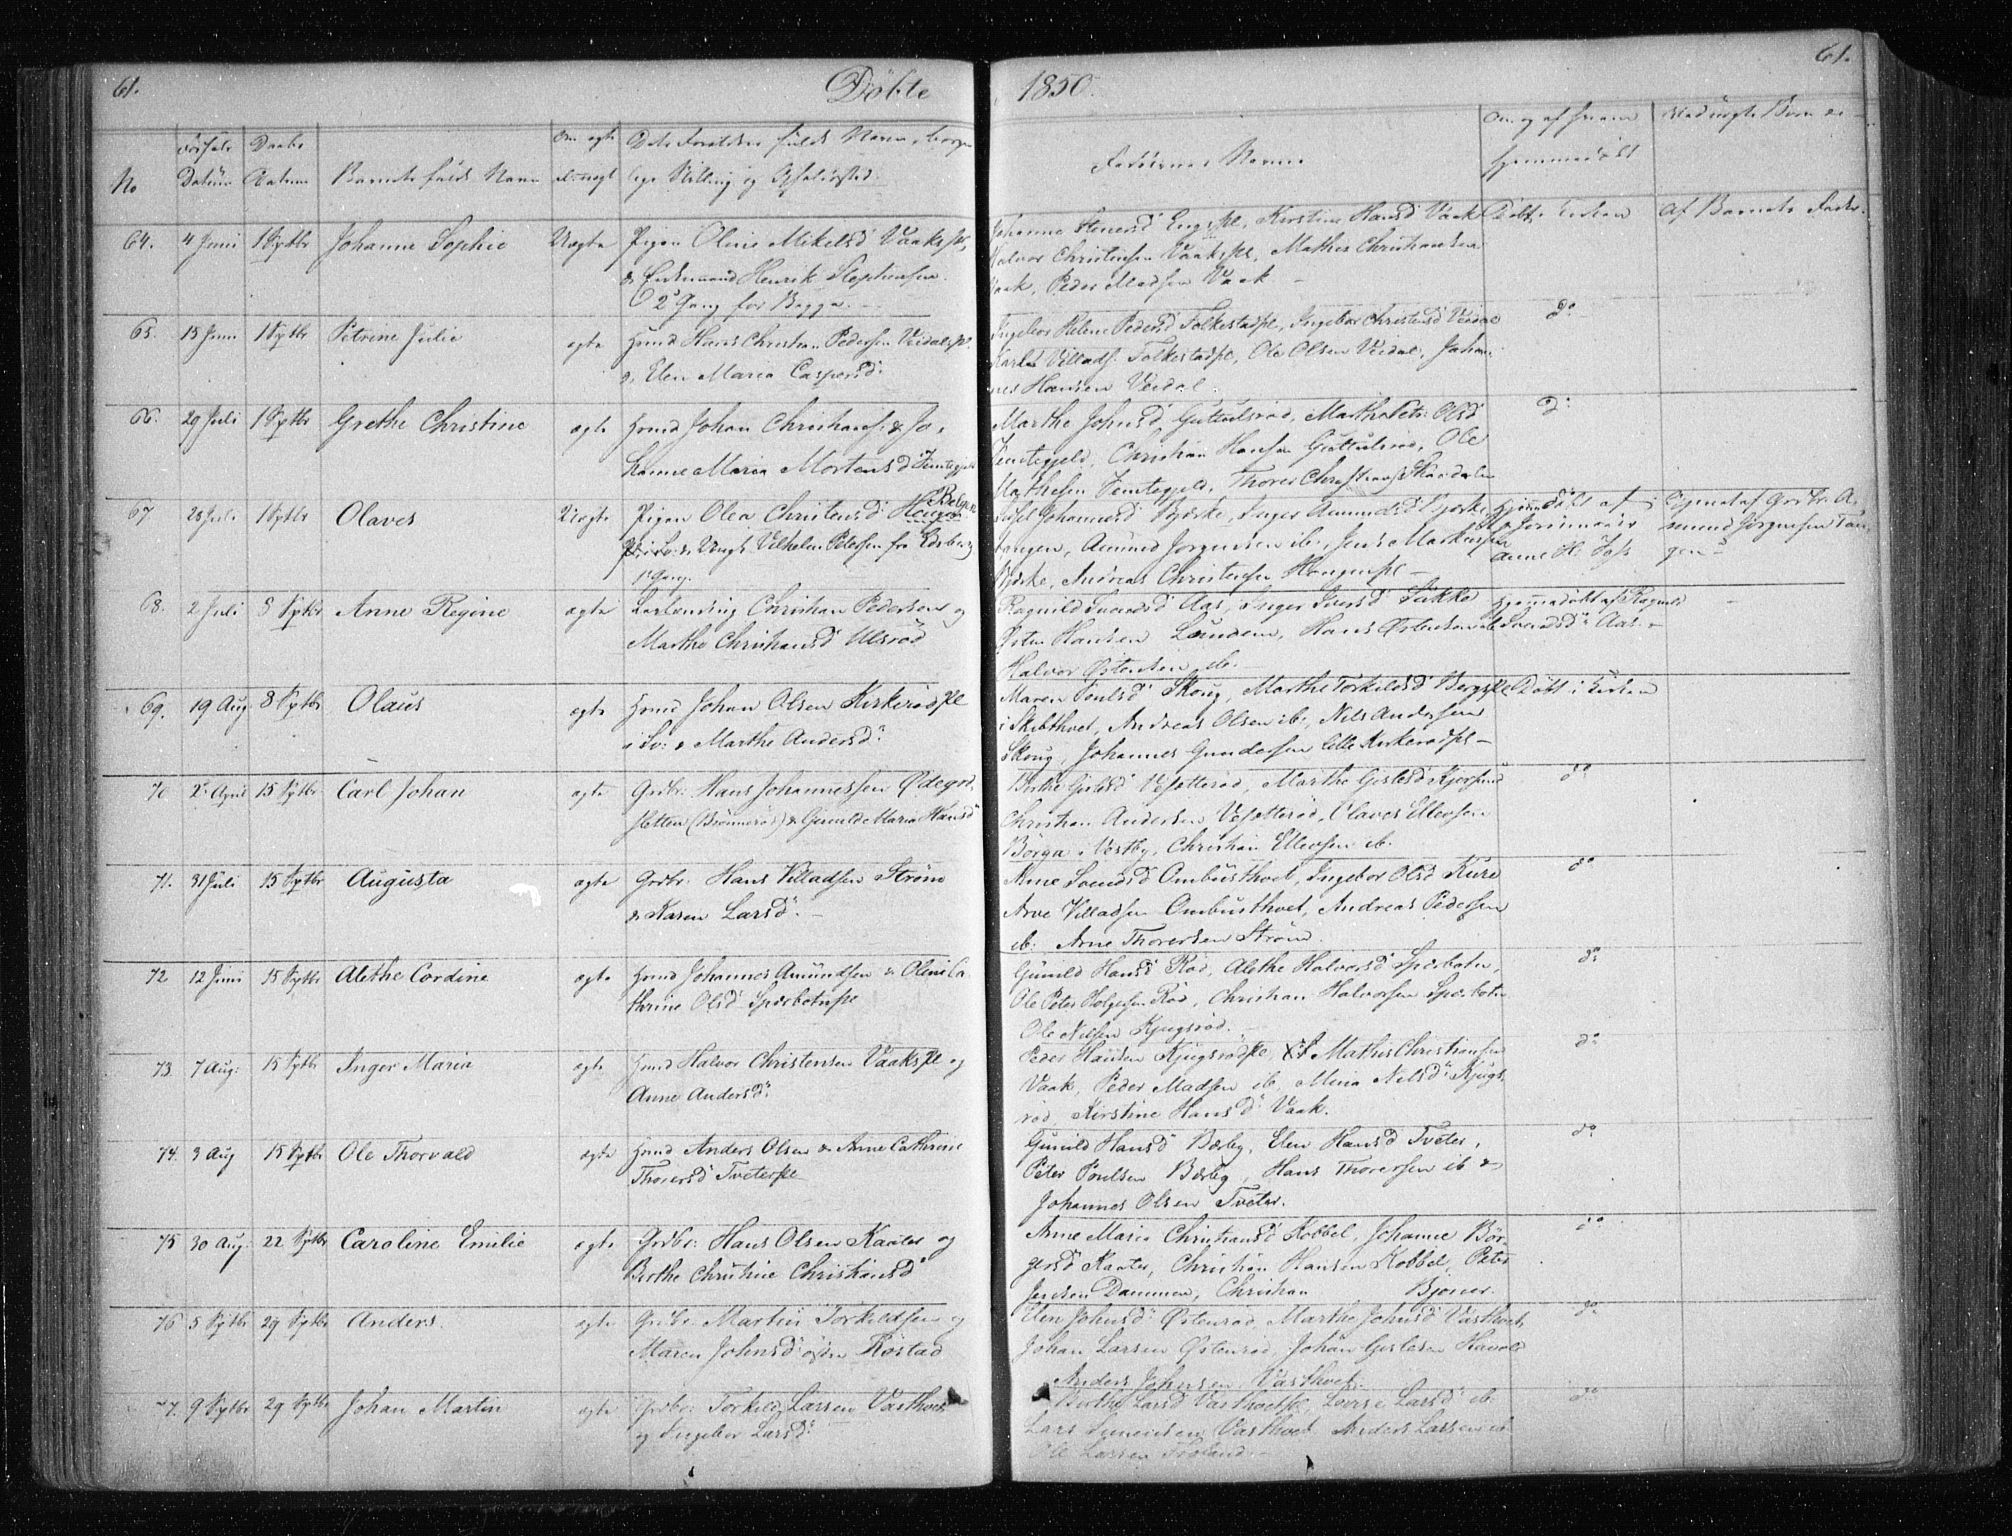 61.
Döbte
1850.
61.
No
Datum
Barnets fulde Navn
Faddernes Navne
64. 4 Juni 1 Sptbr Johanne Sophie Uægte Pigen Oline Mikelsd Vaakspl,
& Enkemand Henrik Stephensen.
2d Gang for Begge.
Kirstine Hansd Vaak
Halvor Christensen Vaakspl, Mathis Christiansen
Vaak, Peder Madsen Vaak
65. 15 Juni 1 Sptbr Petrine Julie ægte Hmd Hans Christian Pedersen Veidalspl.
& Elen Maria Caspersd:
Ingebor Helene Pedersd Folkestadpl, Ingebor Christensd Veidal
Villads: Folkestadpl, Ole Olsen Veidal, Johan-
nes Hansen Veidal.
do
66. 29 Juli 1 Sptbr Grethe Christine ægte Hmd Johan Christians: & Jo-
hanne Maria Mortensd Femtegjeld
Marthe Johnsd Guttulsrød, Marthe Petr: Olsd
Femtegjeld, Christian Hansen Guttulsrød, Ole
Mathesen Femtegjeld, Thorer
do
67 28 Juli 1 Sptbr Olaves Uægte Pigen Olea Christensd Haugen
& Ungk: Vilhelm Petersen fra
1 Gang.
Johannesd Bjerke, Inger Amundsd
Tangen, Amund Jorgensen ib:, Jens Markussen
Bjerke, Andreas Christensen Haugenspl
Hjemmedöbt af
Jordmoder
Anne H.
mund Jörgensen Tan-
gen
68. 2 Juli 8 Sptbr Anne Regine ægte Christian Pedersen og
Marthe Christiansd Ulsröd
Ragnild Svendsd Aas, Inger Iversd Sukke
Østen Hansen Lunden, Hans Østensen ib
Halvor Østensen ib.
Hjemmedöbt af Ragnild
Svendsd Aas.
69. 19 Aug 8 Sptbr Olaus ægte Hmd Johan Olsen Kirkerødspl
& Marthe Andersd:
Maren Poulsd Skoug, Marthe Torkildsd Bergspl
i Skibthvet, Andreas Olsen ib:, Nils Andersen
Skoug, Johannes Gundersen Lille Kirkerødspl
Döbt i Kirken
70 2 April 15 Sptbr Carl Johan ægte Grdbr: Hans Johannessen Ødegrd.
Sletten (Brönneröd) & Gunild Maria Hansd
Berthe Gislsd Vesetteröd, Marthe Gislesd Kjersund
Christian Andersen Vesetteröd, Olaves Ellevsen
Börga i Vestby, Christian Ellevsen ib.
do
71. 31 Juli 15 Sptbr Augusta ægte Grdbr: Hans Villadsen Strøm
& Karen Larsd:
Anne Svendsd Ombusthvet, Ingebor Olsd Kure
Arve Villadsen Ombusthvet, Andreas Pedersen
ib: Arne Thorersen Strøm.
do
72 12 Juni 15 Sptbr Alethe Cordine ægte Hmd Johannes Amundsen & Oline Ca-
thrine Olsd Spærbotnspl
Gunild Hansd Röd, Alethe Halvorsd Spærbotn,
Ole Peter Holgersen Röd, Christian Halvorsen Spærbotn
Ole Nilsen Kjugsröd.
do
73. 7 Aug: 15 Sptbr Inger Maria ægte Hmd Halvor Christensen Vaakspl og
Anne Andersd:
Peder Hansen Kjugsrødspl, Mathis Christiansen
Vaak, Peder Madsen ib, Mina Nilsd: Kjugs-
röd, Kirstine Hansd Vaak.
do
74. 3 Aug 15 Sptbr Ole Thorvald ægte Hmd Anders Olsen & Anne Cathrine
Thorersd Tveterspl
Gunild Hansd Bærby, Elen Hansd Tveter,
Peter Poulsen Bærby, Hans Thorersen ib &
Johannes Olsen Tveter.
do
75 30 Aug 22 Sptbr Caroline Emilie ægte Grdbr: Hans Olsen Kaater og
Berthe Christine Christiansd
Anne Maria Christiansd Kobbel, Johanne Bör-
gersd Kaater, Christian Hansen Kobbel, Peter
Jensen Dammen, Christian Bjoner.
do
76 5 Sptbr 29 Sptbr Anders. ægte Grdbr: Martin Torkildsen og
Maren Johnsd østre Røstad
Elen Johnsd Østenröd, Marthe Johnsd Vasthvet,
Johan Larsen Østenröd, Johan Gislesen Havold
Anders Johnsen Vasthvet.
do
77. 9 Sptbr 29 Sptbr Johan Martin ægte Grdbr: Torkild Larsen Vasthvet
og Ingebor Larsd:
Berthe Larsd Vasthvetspl, Lovise Larsd ib
Lars Simensen Vasthvet, Anders Larsen ib
Ole Larsen Froland.
do